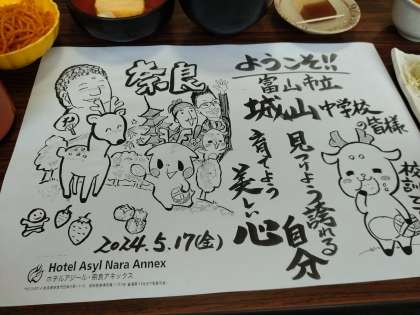 ようこそ!!
富山市立
城山中学校
の皆様
見つけよう誇れる
自分
育てよう
美しい心
奈良
2024.5.17(金)
Hotel Asyl Nara Annex
ホテルアジール・奈良アネックス